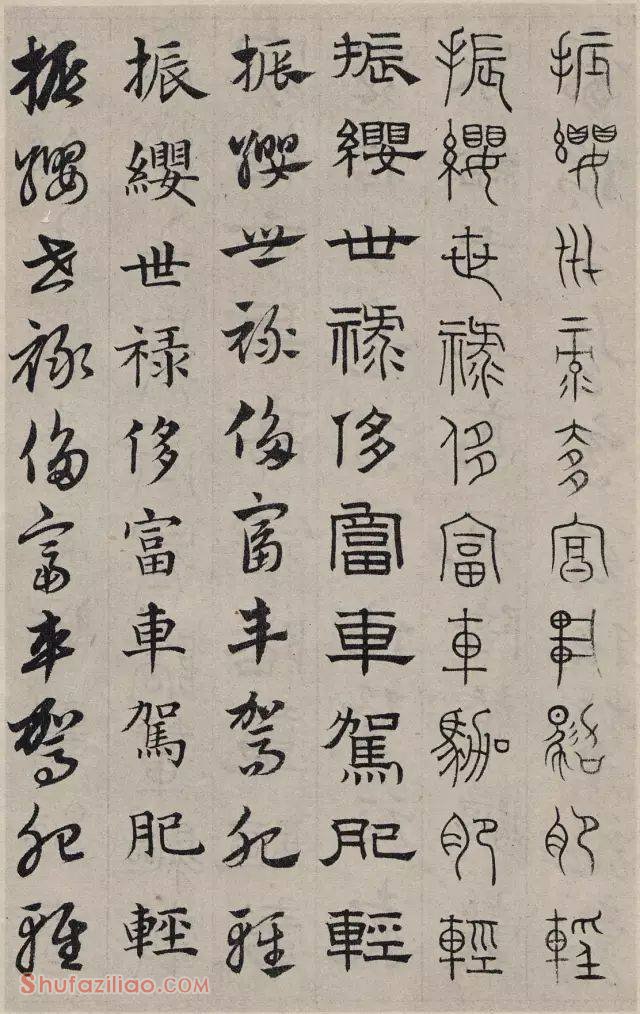 振纓世祿侈富車駕肥輕
振纓世祿侈富車駕肥輕
振纓世祿侈富車駕肥輕
振纓世祿侈富車駕肥輕
振纓世禄侈富車駕肥輕
振纓世祿侈富車駕肥輕
Shufaziliao.com